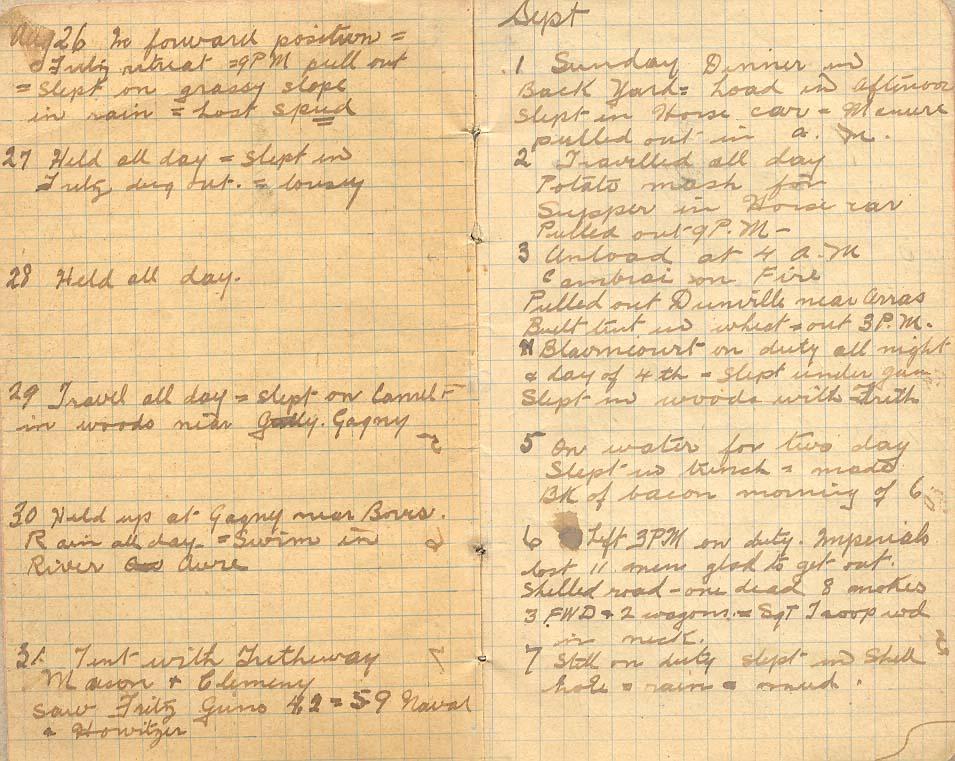 Aug 26 In forward position =
Fritz retreat = 9 PM pull out
= Slept on grassy slope
in rain = Lost spud
27 Held all day = Slept in
Fritz dug out. = lousey
28 Held all day.
29 Travel all day = slept on
in woods near Gagny
30 Held up at Gagny near Boves.
Rain all day = Swim in
River Avre
31 Tent with Tretheway
Mason + Clemeny
Saw Fritz Guns 4.2 = 5.9 Naval
& Howitzer
Sept
1 Sunday Dinner in
Back Yard = Load in Afternoon
Slept in Horse car = Manure
pulled out in a. m.
2 Travelled all day
Potato mash for
Supper in Horse car
Pulled out 9 P.M -
3 Unload at 4 A.M
Cambrai on Fire
Pulled out Dunville near Arras
Built tent in wheat = out 3 P.M.
4 on duty all night
& day of 4th = Slept under gun
Slept in woods with Treth
5 On water for two day
Slept in trench = made
BK of bacon morning of 6
6 Left 3PM on duty. Imperials
lost 11 men glad to get out.
Shelled road - one dead 8
3 FWD + 2 wagons. = Sgt Troop wd
in neck.
7 Still on duty slept in Shell
hole = rain = mud.